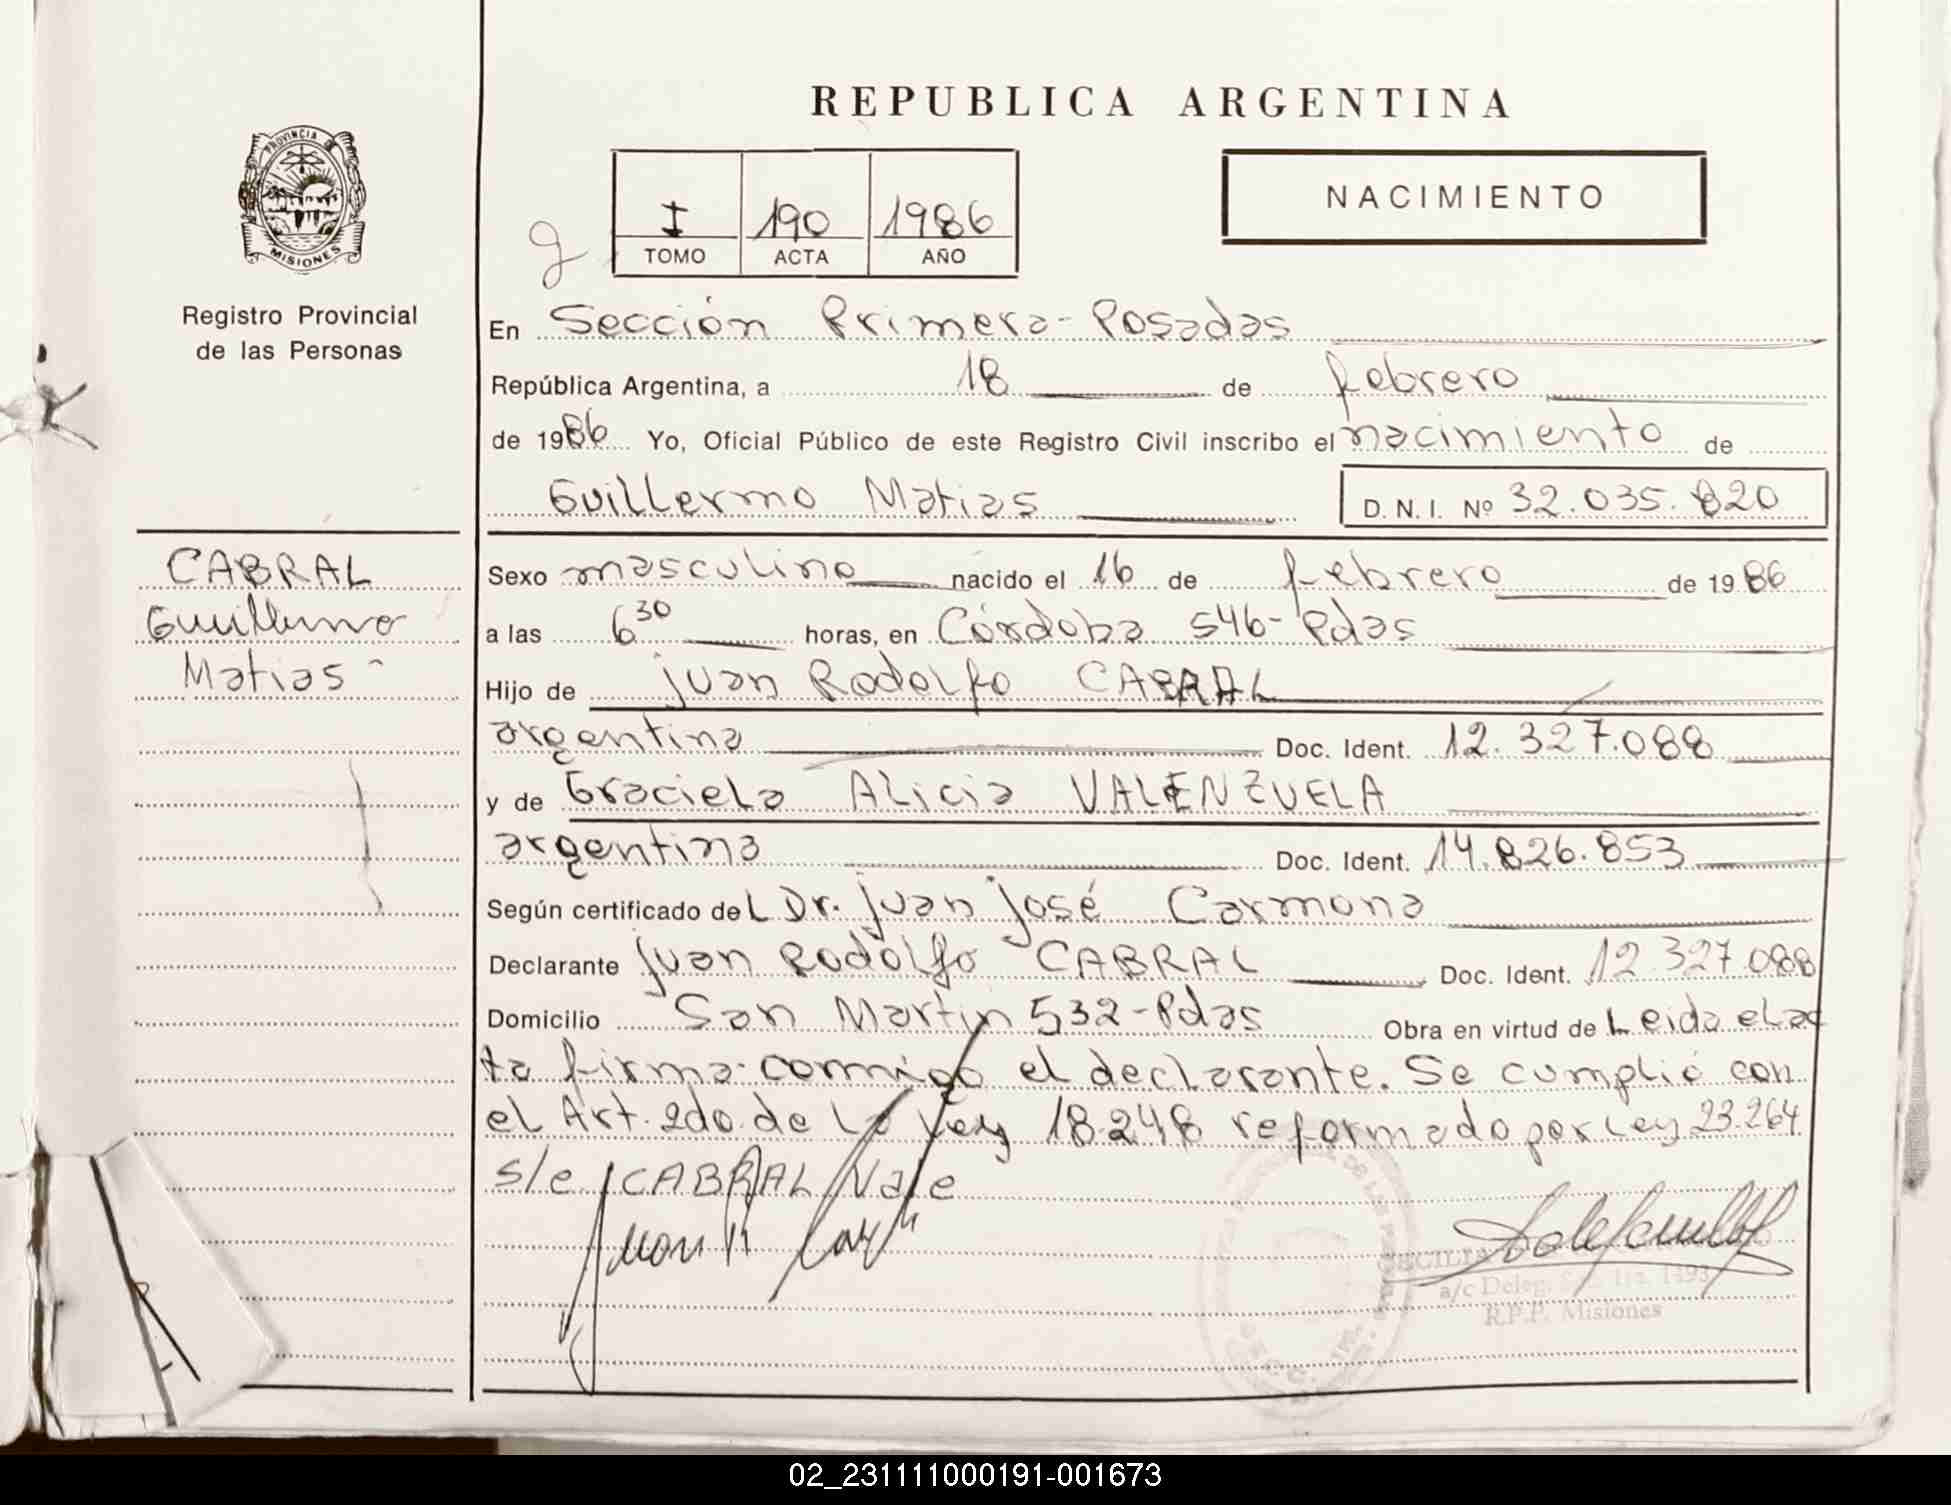 REPUBLICA ARGENTINA
PROVINCIA DE
MISIONES
I 190 1986
TOMO ACTA AÑO
NACIMIENTO
Registro Provincial
de las Personas
En Sección Primera - Posadas
República Argentina, a 18 de febrero
de 1986 Yo, Oficial Público de este Registro Civil inscribo el nacimiento de
Guillermo Matias D.N.I. Nº 32.035.820
CABRAL
Guillermo
Matias
Sexo masculino nacido el 16 de febrero de 1986
a las 6 30 horas, en Córdoba 546 - Pdas
Hijo de Juan Rodolfo CABRAL
argentina Doc. Ident. 12.327.088
y de Graciela Alicia VALENZUELA
argentina Doc. Ident. 14.826.853
Según certificado del Dr. Juan José Carmona
Declarante Juan Rodolfo CABRAL Doc. Ident. 12.327.088
Domicilio San Martin 532 - Pdas Obra en virtud de Leida el ac
ta firma conmigo el declarante. Se cumplió con
el Art. 2do. de la Ley 18.248 reformado por Ley 23.264
s/e CABRAL Vale
CECILIA
a/c Deleg. Sec. 1ra. 1493
R.P.P. Misiones
02_231111000191-001673